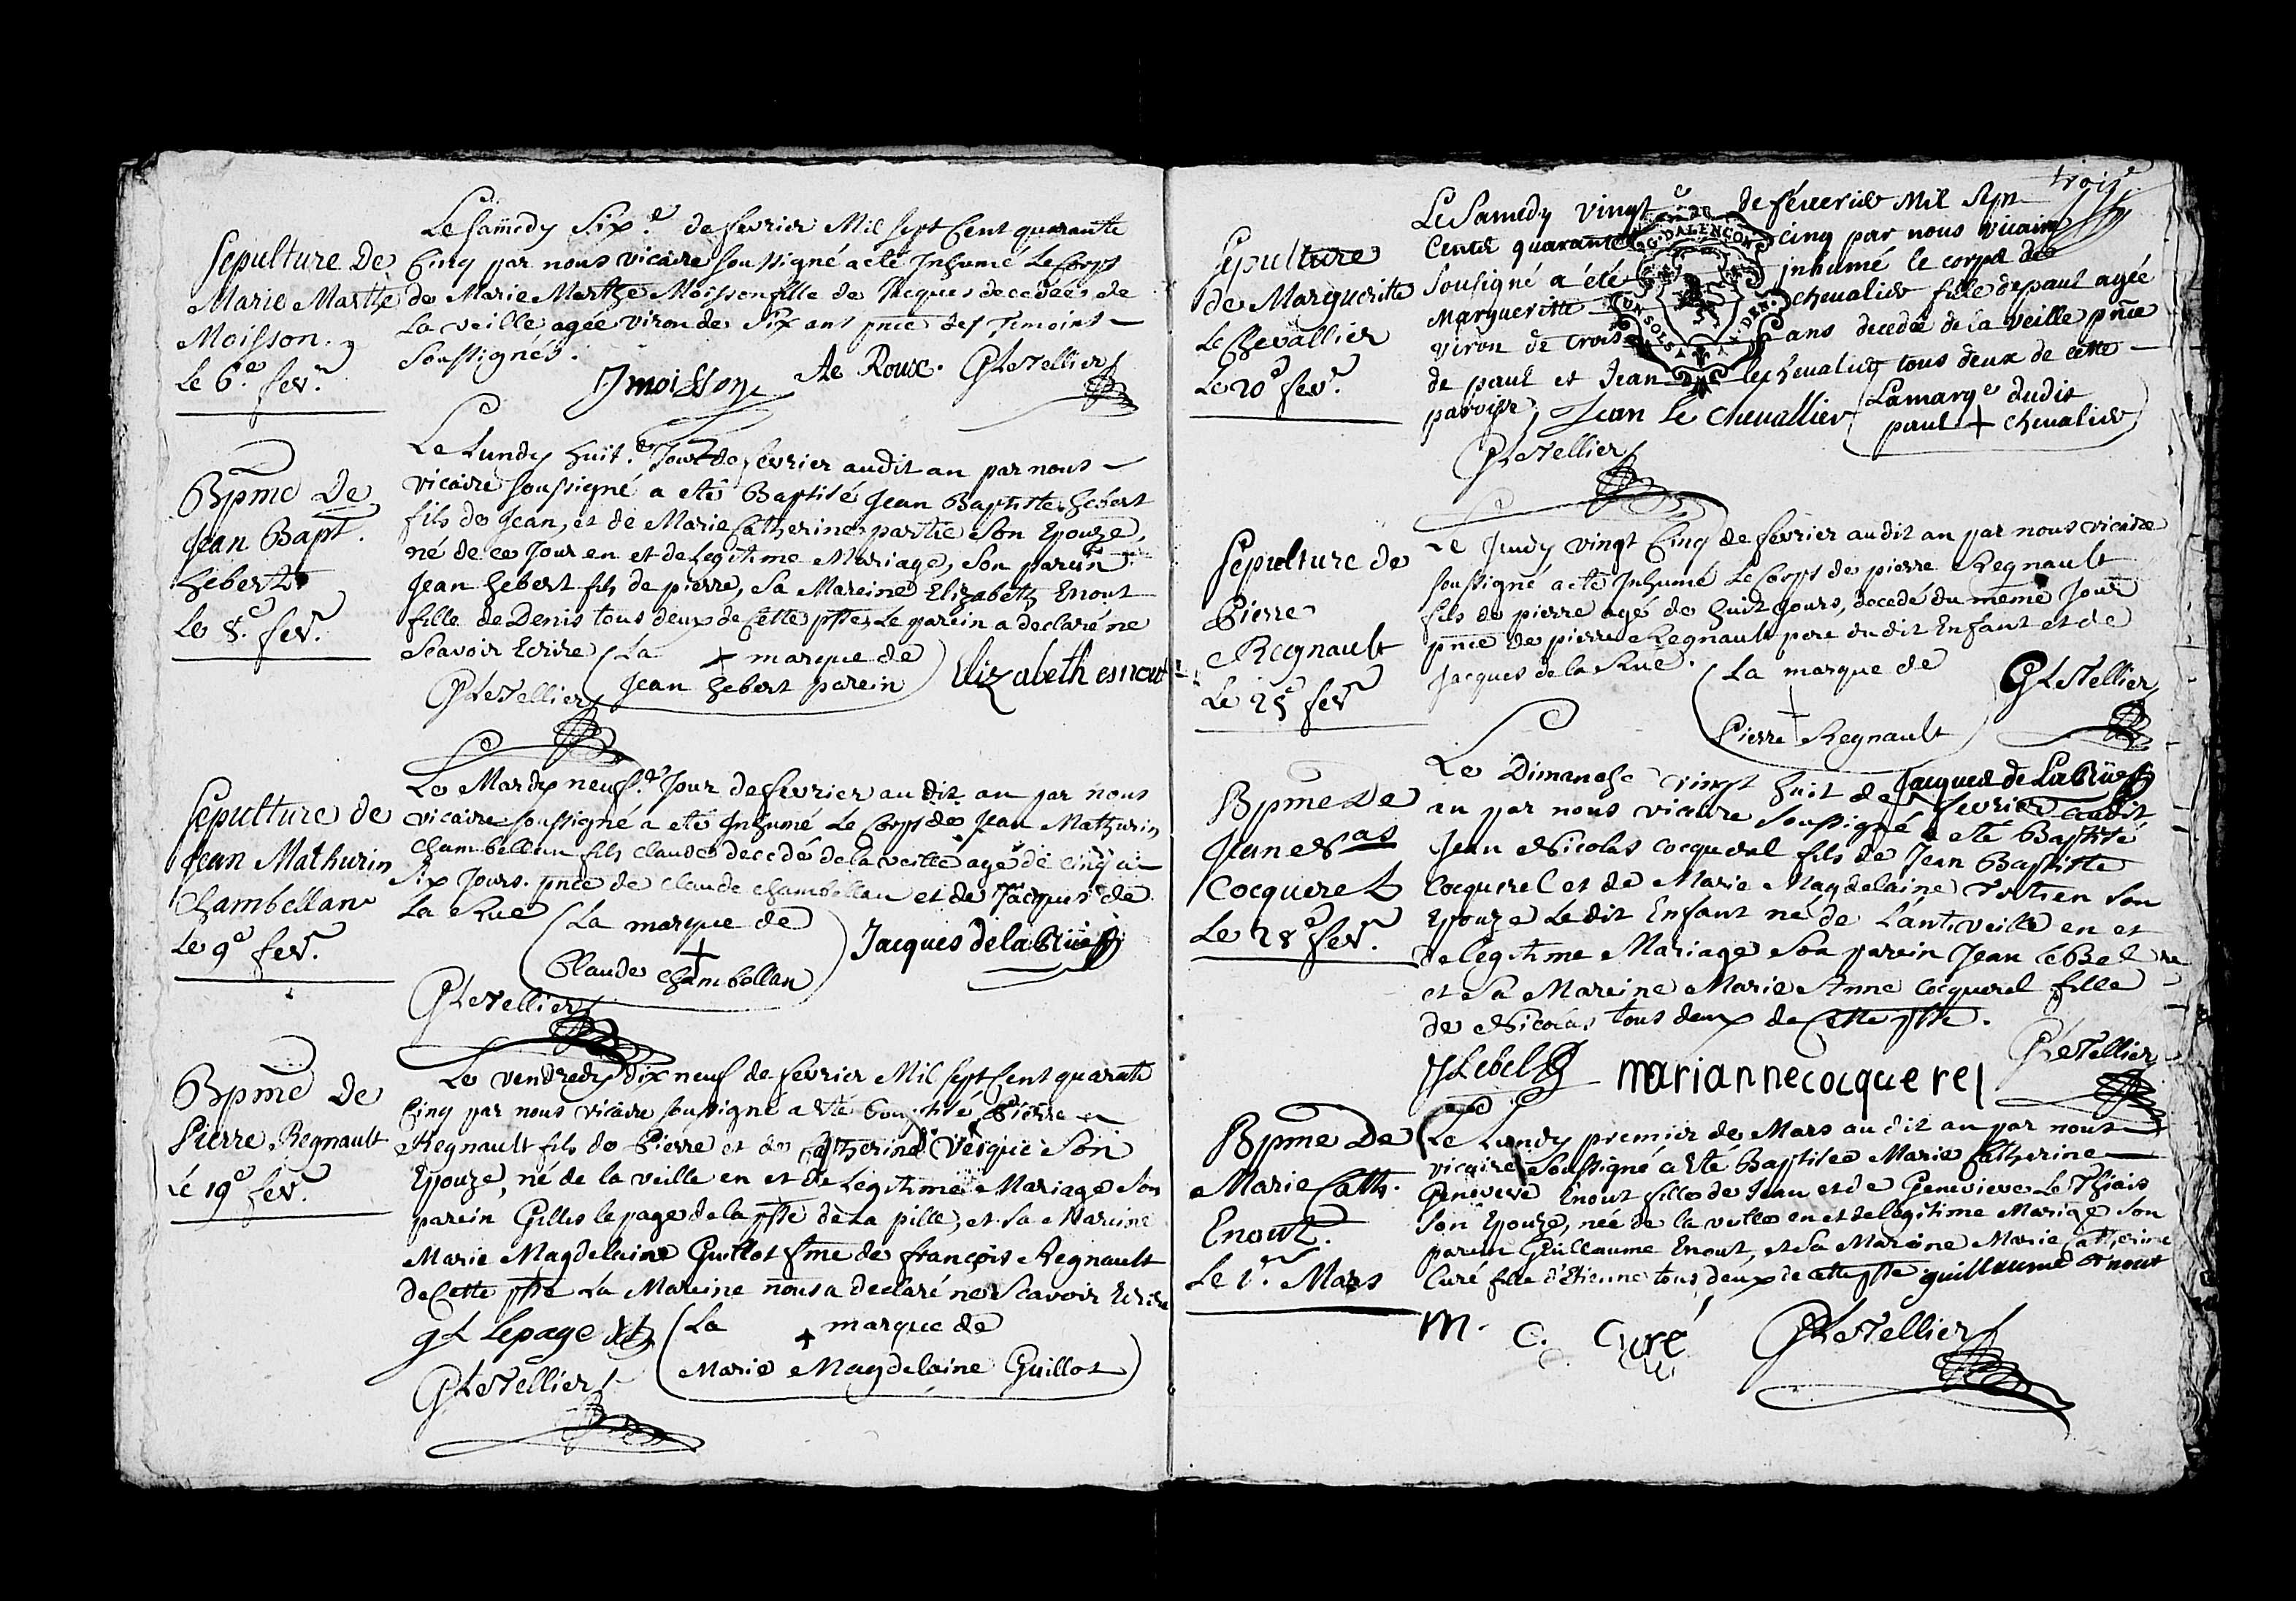 Sepulture De
Marie Marthe
Moisson.
Le 6.e fev.r
Le Samedy Six.e de fevrier Mil Sept Cent quarante
Cinq par nous vicaire soussigné a eté Inhumé Le Corps
de Marie Marthe Moisson fille de Jacques decedeés de
La veille agée viron de Six ans pnce des Temoins
Soussignés.
J moisson Le Roux. G LeTellier
Bpme De
Jean Bapt.
hébert
Le 8.e fev.r
Le Lundy huit.e Jour de fevrier audit an par nous
vicaire soussigné a eté Baptisé Jean Baptiste hebert
fils de Jean, et de Marie Catherine partie Son Epouze,
né de ce Jour en et de Legitime Mariage, Son parein
Jean hebert fils de pierre, Sa Mareine Elizabeth Enout
fille de Denis tous deux de Cette psse, Le parein a declaré ne
Scavoir Ecrire (La + marque de
Jean hebert parein) Elizabeth esnout
G LeTellier
Sepulture de
Jean Mathurin
Chambellan
Le 9.e fev.r
Le Mardy neuf.e Jour de fevrier au dit an par nous
vicaire soussigné a eté Inhumé Le Corps de Jean Mathurin
Chambellan fils claude decedé de la veille agé de cinq a
Six Jours. pnce de claude chambellan et de Jacques de
La Rue (La marque de
+
Claude chambellan) Jacques de la Rüe
G LeTellier
Bpme De
Pierre Regnault
Le 19.e fev.r
Le vendredy dix neuf de fevrier Mil Sept Cent quarate
Cinq par nous vicaire soussigné a Eté baptisé Pierre
Regnault fils de Pierre et de Catherine Vesque Son
Epouze, né de la veille en et de Legitime Mariage Son
parein Gilles lepage de la psse de La pille, et Sa Mareine
Marie Magdelaine Guillot fme de françois Regnault
de Cette psse La Mareine nous a declaré ne Scavoir Ecrire
g L Lepage (La + marque de
Marie Magdelaine Guillot)
G LeTellier
troize
Sepulture
de Margueritte
Le Chevallier
Le 20.e fev.r
Le Samedy vingt.e de féuerier Mil Sept
Cents quarante cinq par nous vicaire
Sousigné a été jnhumé le corps de
Margueritte chevalier fille de paul agée
viron de trois ans decedée de la veille pnce
de paul et Jean le chevalier tous deux de cette
paroisse, Jean Le chevallier (Lamarqe dudit
paul + chevalier)
G. DALENCON
G LeTellier
Sepulture de
Pierre
Regnault
Le 25.e fev.r
Le Jeudy vingt Cinq de fevrier audit an par nous vicaire
soussigné a eté Inhumé Le Corps de pierre Regnault
fils de pierre agé de huit Jours, decedé du même Jour
pnce de pierre Regnault pere dudit Enfant et de
Jacques de la Rue. (La marque de
+
Pierre Regnault) G LeTellier
Jacques de La Rüe
Bpme De
Jean Nas
Cocquerel
Le 28.e fev.r
Le Dimanche vingt huit de fevrier audit
an par nous vicaire soussigné a eté Baptisé
Jean Nicolas Cocquerel fils de Jean Baptiste
Cocquerel et de Marie Magdelaine Son
Epouze Ledit Enfant né de L'antiveille en et
de legitime Mariage Son parein Jean LeBel
et Sa Mareine Marie Anne Cocquerel fille
de Nicolas tous deux de Cette psse.
J Lebel mariannecocquerel G LeTellier
Bpme De
Marie Cath.
Enout.
Le 1.r Mars
Le Lundy premier de Mars au dit an par nous
vicaire soussigné a Eté Baptisée Marie Catherine
Genevieve Enout fille de Jean et de Genevieve Le Thiais
Son Epouze, née de la veille en et de legitime Mariage Son
parein Guillaume Enout, et Sa Mareine Marie Catherine
Curé fille d'Etienne tous deux de cette psse guillaume Enout
M. C. Curé G LeTellier